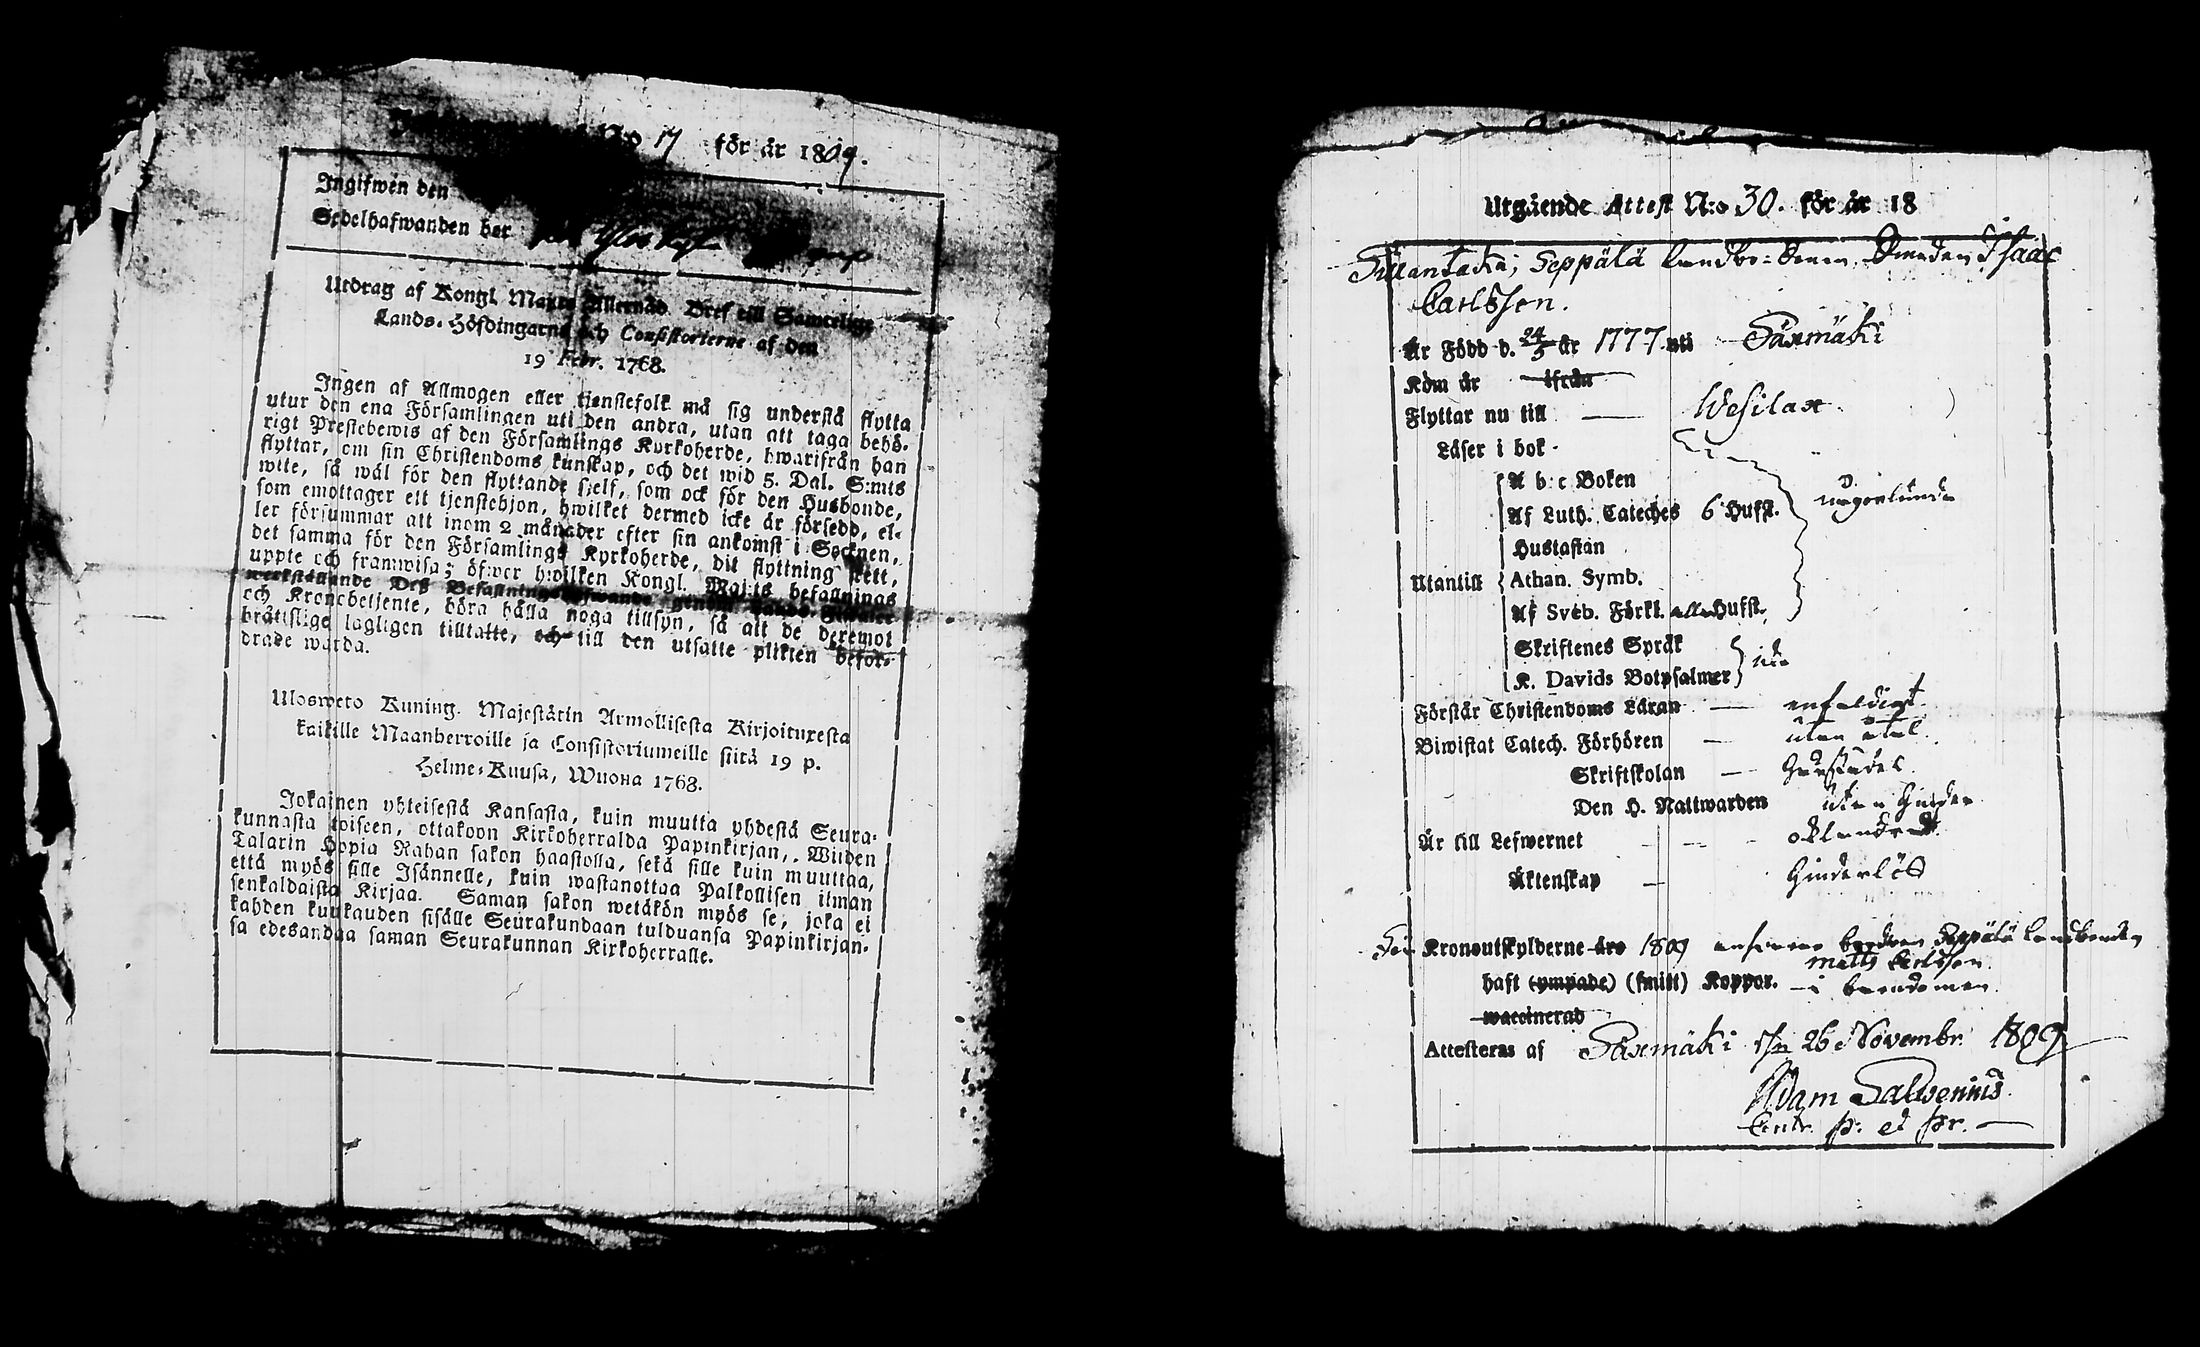 N:o 17 för år 1809.
Ingifwen den
Sedelhafwanden ber
Utdrag af Kongl. Maj:ts Allernåd. Bref till Samtelige
Lands-Höfdingarne och Consistorierne af den
19 Febr. 1768.
Ingen af Allmogen eller tjenstefolk må sig understå flytta
utur den ena Församlingen uti den andra, utan att taga behö-
rigt Prestebewis af den Församlings Kyrkoherde, hwarifrån han
flyttar, om sin Christendoms kunskap, och det wid 5. Dal. S:mts
wite, så wäl för den flyttande sjelf, som ock för den Husbonde,
som emottager ett tjenstehjon, hwilket dermed icke är försedd, el-
ler försummar att inom 2 månader efter sin ankomst i Socknen,
det samma för den Församlings Kyrkoherde, dit flyttning skett,
uppte och framwisa; öfwer hwilken Kongl. Maj:ts befallnings
werkställande Deß Befallningshafwande genom Lands-Fiscaler
och Kronobetjente, böra hålla noga tillsyn, så att de deremot
bråttslige lagligen tilltalte, och till den utsatte plikten befor-
drade warda.
Ulosweto Kuning. Majestätin Armollisesta Kirjoituxesta
kaikille Maanherroille ja Consistoriumeille siitä 19 p.
Helme-Kuusa, Wuona 1768.
Jokainen yhteisestä Kansasta, kuin muutta yhdestä Seura-
kunnasta toiseen, ottakoon Kirkoherralda Papinkirjan, Wiiden
Talarin Hopia Rahan sakon haastolla, sekä sille kuin muuttaa,
että myös sille Isännelle, kuin wastanottaa Palkollisen ilman
senkaldaista Kirjaa. Saman sakon wetäkön myös se, joka ei
kahden kuukauden sisälle Seurakundaan tulduansa Papinkirjan-
sa edesandaa saman Seurakunnan Kirkoherralle.
Utgående Attest N:o 30. för år 18
Seppälä Landbo- Isaac
Carlsson.
Är Född d. 24/5 år 1777 uti Säxmäki
Kom år ifrån
Flyttar nu till Wesilax
Läser i bok
A b c Boken
Af Luth. Cateches 6 Hufst. någorlunda
Hustaflan
Utantill Athan. Symb.
Af Sveb. Förkl. alla Hufst.
Skriftenes Språk
K. Davids Botpsalmer
Förstår Christendoms Läran enfaldigt
Biwistat Catech. Förhören utan
Skriftskolan
Den H. Nattwarden utan hinder
Är till Lefwernet oklandrad
Äktenskap hinderlös
För Kronoutskylderne åro 1809 ansvarar brodren Seppälä Landbonden
Matts Carlsson
haft (ympade) (smitt) Koppor. i barndomen
waccinerad
Attesteras af Säxmäki d. 26 Novembr. 1809
Adam Salvenius